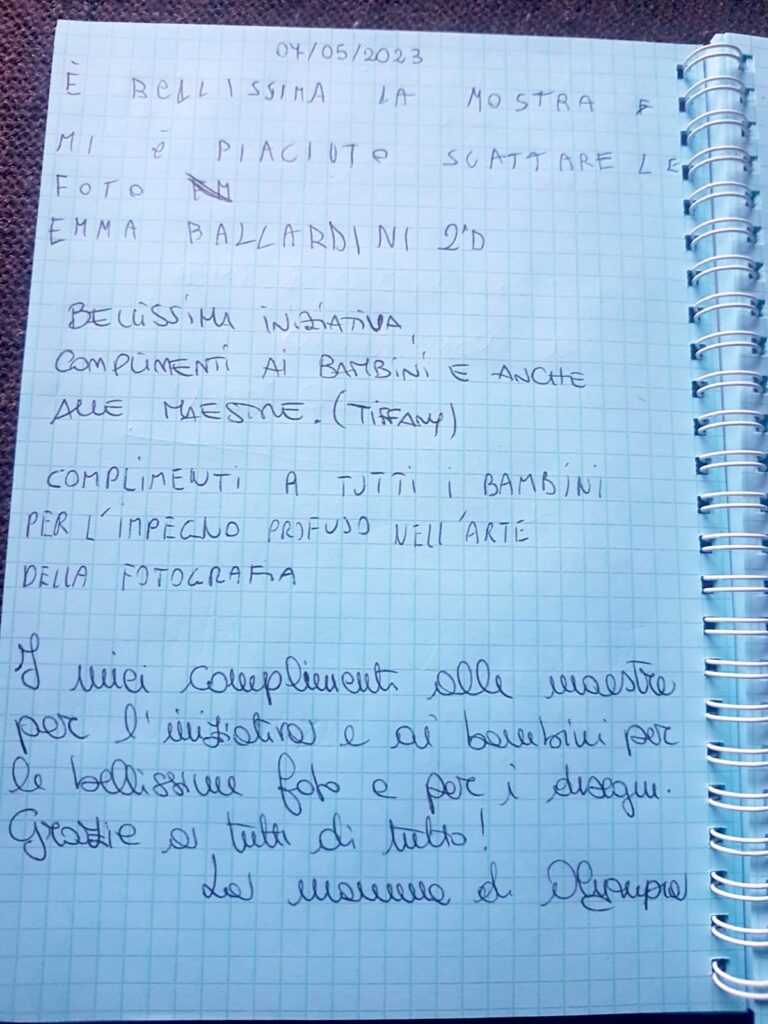 07/05/2023
È BELLISSIMA LA MOSTRA E
MI è PIACIUTO SCATTARE LE
FOTO
EMMA BALLARDINI 2°D
BELLISSIMA INIZIATIVA,
COMPLIMENTI AI BAMBINI E ANCHE
ALLE MAESTRE. (TIFFANY)
COMPLIMENTI A TUTTI I BAMBINI
PER L'IMPEGNO PROFUSO NELL'ARTE
DELLA FOTOGRAFIA
I miei complimenti alle maestre
per l'iniziativa e ai bambini per
le bellissime foto e per i disegni.
Grazie a tutti di tutto!
La mamma di Olympia